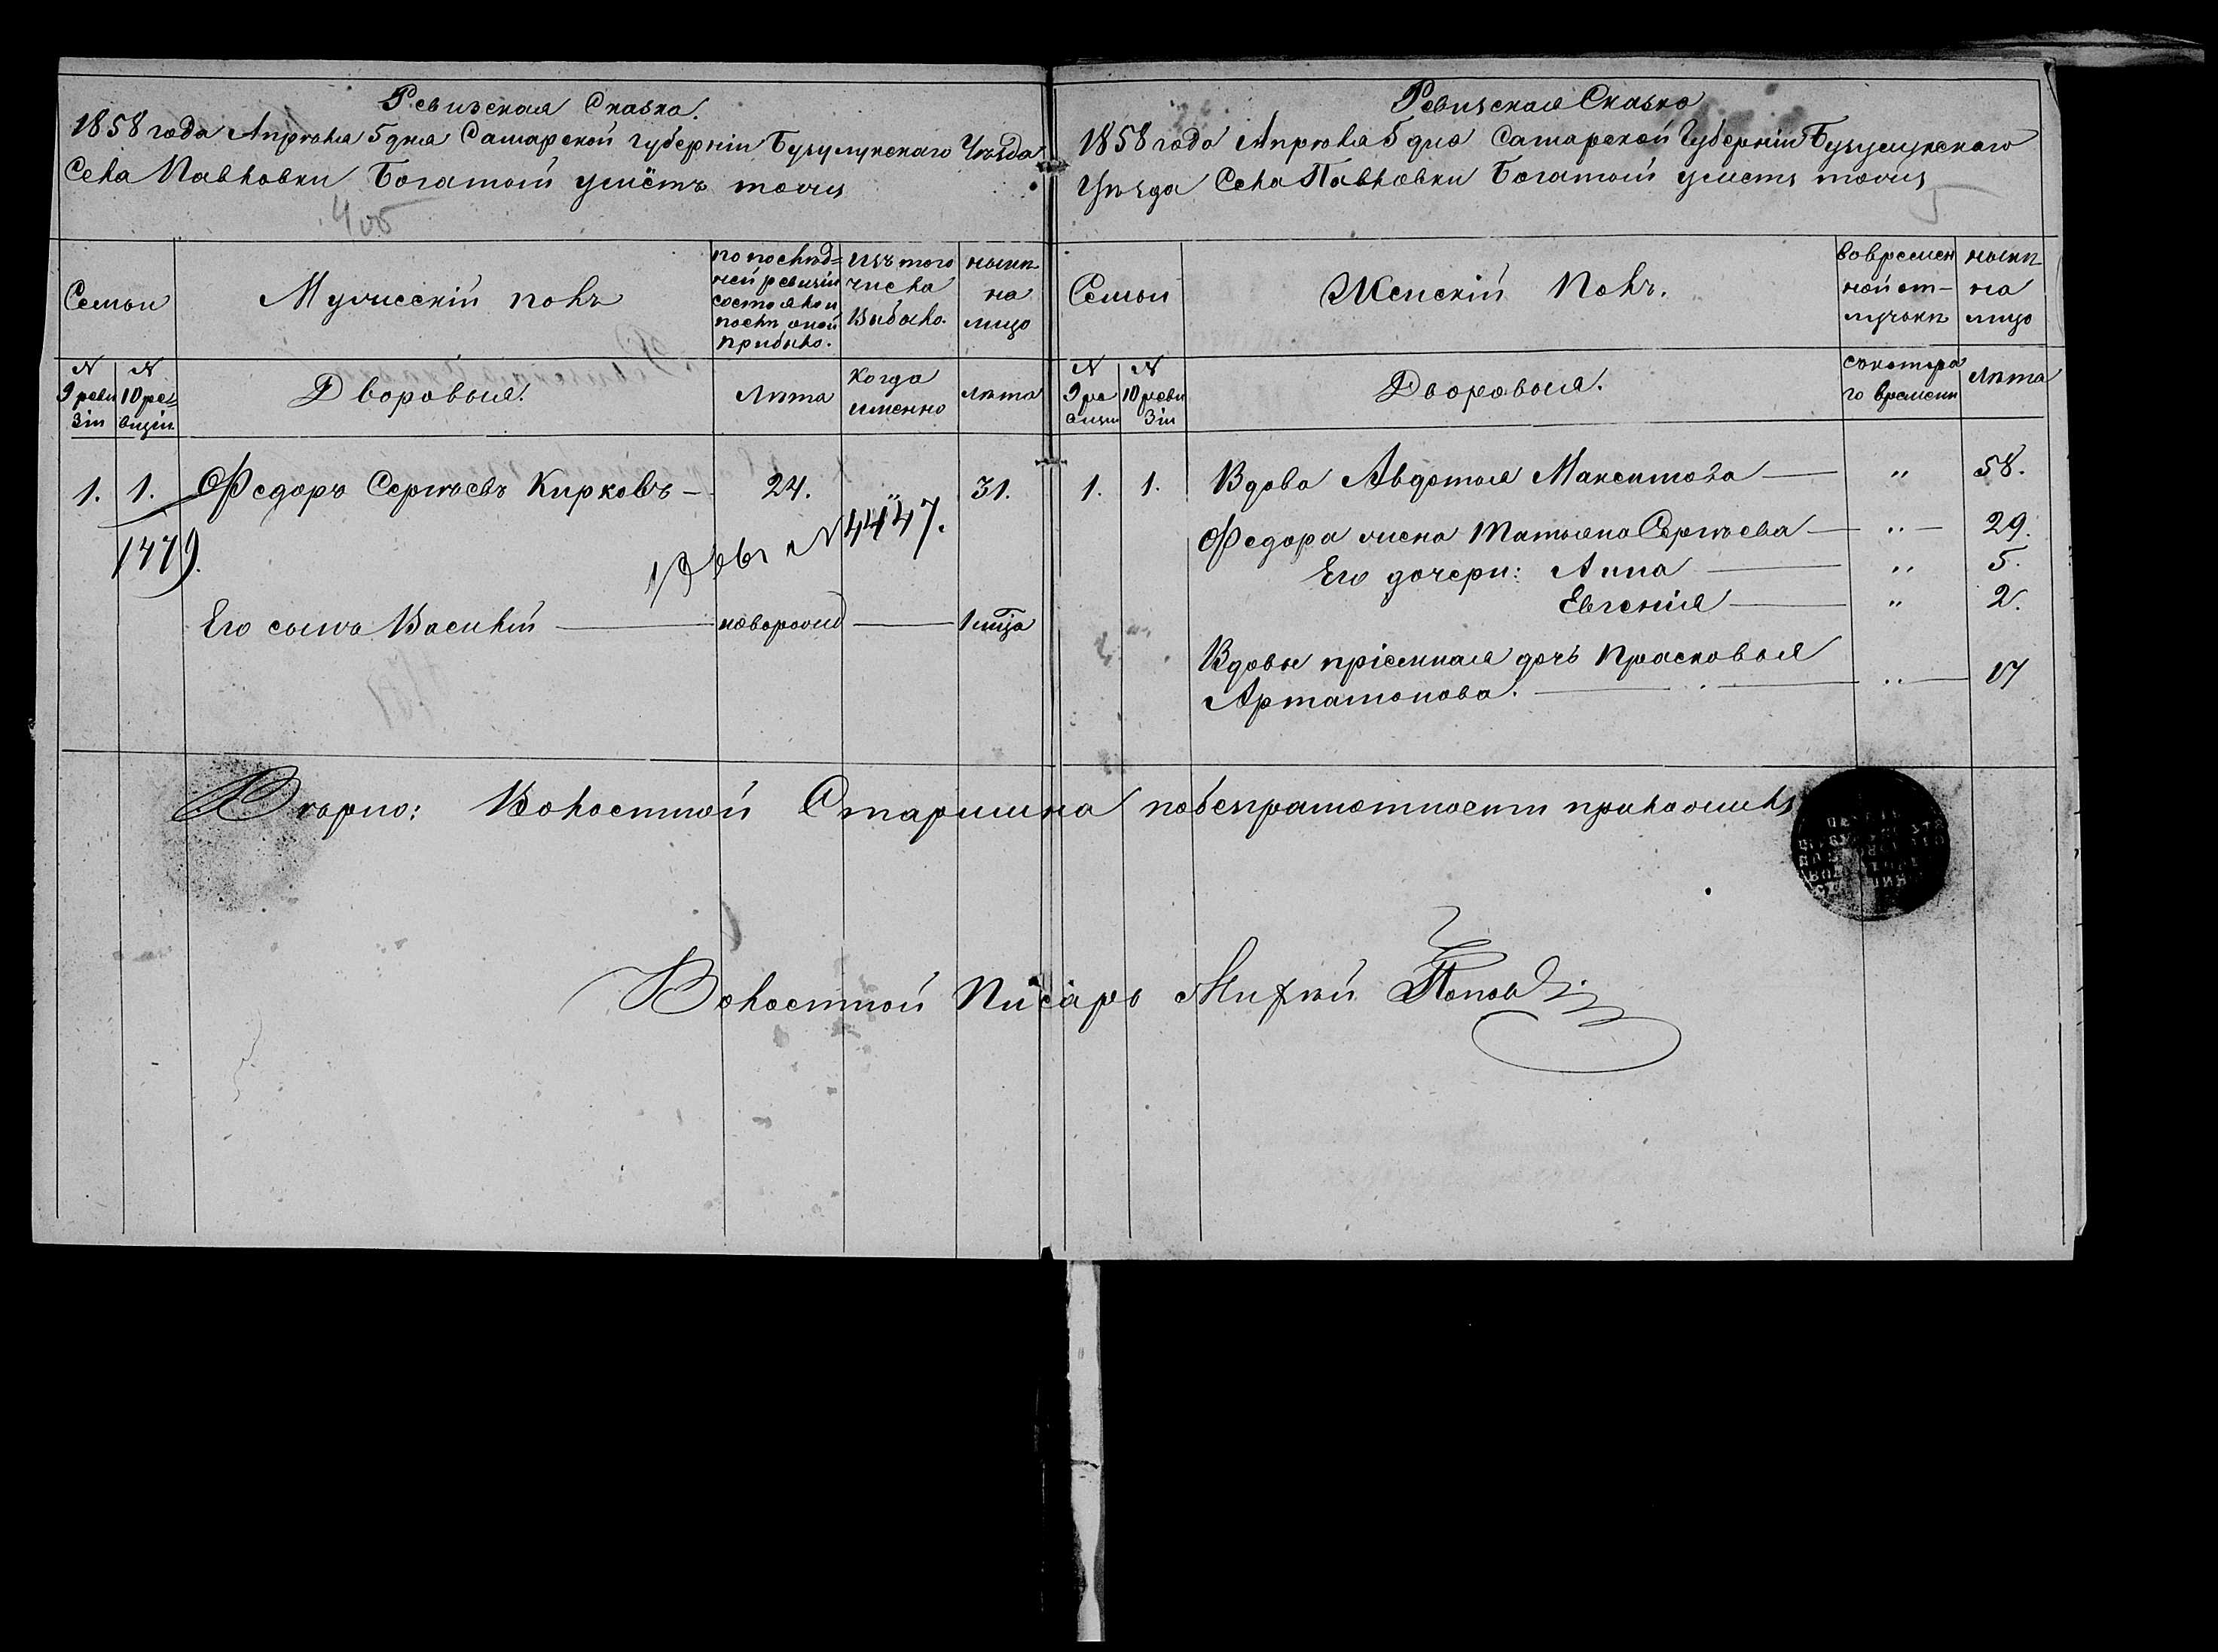 Ревизская Сказка.
1858 года Апрѣля 5 дня Самарской губерніи Бузулукскаго Уѣзда
Села Павловки Богатый умётъ тожъ
4 об
Семьи
Мужескій полъ
по послѣд=
ней ревизіи
состояло и
послѣ оной
прибыло.
Изъ того
числа
выбыло.
нынѣ
на
лицо
N
9 реви
зіи
N
10 ре=
визіи
Дворовыя.
Лѣта
Когда
именно
Лѣта
1.
1.
Ѳедоръ Сергѣевъ Кирковъ
24.
"
31.
1479.
N 4447.
Его сынъ Василій
новорожд
1 мца
Ревизская Сказка
1858 года Апрѣля 5 дня Самарской Губерніи Бузулукскаго
Уѣзда Села Павловки Богатый уметъ тожъ
5
Семьи
Женскій Полъ.
во времен
ной от-
лучкѣ
нынѣ
на
лицо
N
9 ре
визіи
N
10 реви
зіи
Дворовыя.
съ котора
го времени
Лѣта
1.
1.
Вдова Авдотья Максимова
"
58.
Ѳедора жена Матьяна Сергѣева
"
29.
Его дочери: Анна
"
5.
Евгенія
"
2.
Вдовы пріемная дочь Прасковья
Артамонова.
"
17
Вѣрно: Волостной Старшина по безграмотности приложилъ
Волостной Писарь Михѣй Поповъ